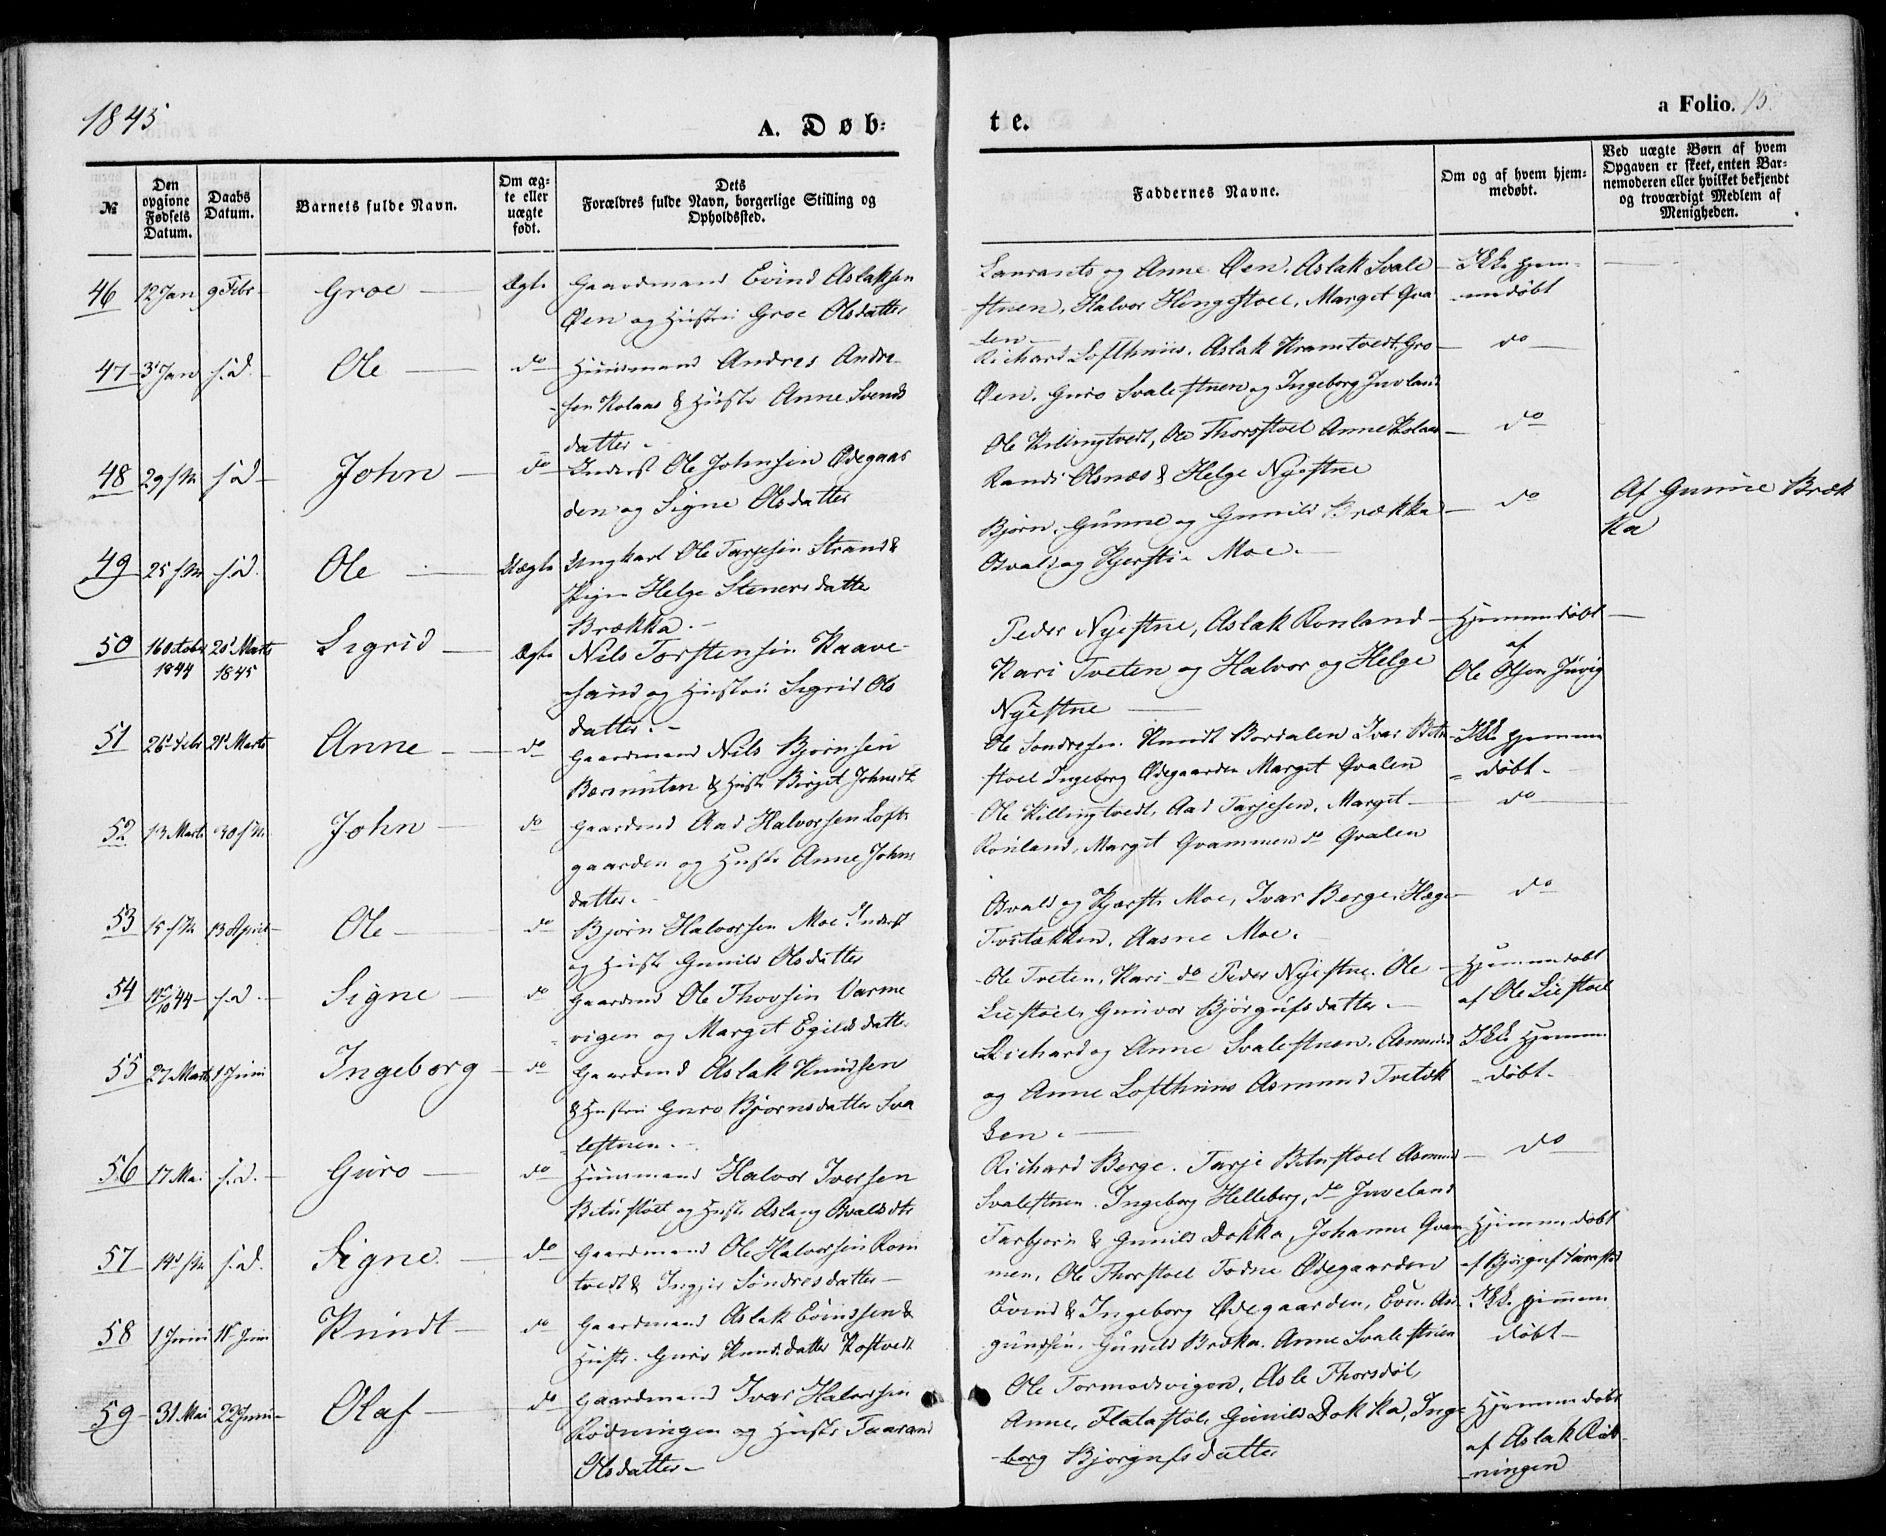 1845
A. Døb-
te.
a Folio. 15.
№
Den opgivne Fødsels Datum.
Daabs Datum.
Barnets fulde Navn.
Om ægte eller uægte født.
Dets Forældres fulde Navn, borgerlige Stilling og Opholdssted.
Faddernes Navne.
Om og af hvem hjemmedøbt.
Ved uægte Børn af hvem Opgaven er skeet, enten Barnemoderen eller hvilket bekjendt og troværdigt Medlem af Menigheden.
46 12 Jan 9 Febr Groe Ægte Gaardmand Evind Aslaksen
Øen og Hustru Groe Olsdatter
og Anne Øen. Aslak Svale-
stuen, Halvor Hengestoel, Marget Qva-
len
Ikke hjem-
medøbt
47 3 Jan s.d. Ole do Huusmand Andres Andre-
sen Kolaas & Hustr Anne Svends
datter
Richard Lofthuus. Aslak Kramtvedt. Gro
Øen. Guro Svalestuen og Ingeborg Juvland
do
48 29 s.d. John do Inderst Ole Johnsen Ødegaar
den og Signe Olsdatter
Ole Killingtvedt, Ole Thorsstoel Anne Kolaas
Randi Olsnæs & Helge Nyestue
do
49 25 s.d. Ole Uægte Ungkarl Ole Tarjesen Strand &
Pigen Helge Stenersdatter
Brækka.
Bjørn, Gunne og Gunild Brækka
Osvald og Kjersti Moe.
do
Af Gunne Bræk
ka
50 16 October 1844 21 Marts 1845 Sigrid Ægte Nils Torstensen Kaave-
sand og Hustru Sigrid Ols
datter.
Peder Nyestue, Aslak Ronland
Kari Tveten og Halvor og Helge
Nyestue
Hjemmedøbt
af
Ole Olsen Juvig
51 26 Febr 21 Marts Anne do Gaardmand Nils Bjørnsen
Bærunuten & Hustr Birget Johnsdt.
Ole Sondresen. Knudt Bordalen Ivar Bitu
stoel Ingeborg Ødegaarden Marget Qvalen
Ikke hjemme
døbt.
52 13 Marts 30 John do Gaardmd Aad Halvorsen Lofts
gaarden og Hustr Anne Johns
datter.
Ole Killingtvedt, Aad Tarjesen, Marget
Ronland, Marget Qvammen do Qvalen
do
53 15 13 April Ole do Bjørn Halvorsen Moe Inderst
og Hustr Gunild Olsdatter
Osvald og Kjersti Moe, Ivar Berge. Hæge
Tvetækken. Aasne Moe.
do
54 44 s.d. Signe do Gaardmd Ole Thovsen Varme
vigen og Marget Egilds datter
Ole Tveten, Kari do Peder Nyestue. Ole
Liestoel, Gunvor Bjørgufsdatter.
Hjemmedøbt
af Ole Liestoel
55 27 Marts 1 Juni Ingeborg do Gaardmd Aslak Knudsen
& Hustru Guro Bjørnsdatter Sva
lestuen.
Richard og Anne Svalestuen. Asmund
og Anne Lofthuus Asmund Tvetæk
ken.
Ikke hjemme
døbt.
56 17 Mai s.d. Guro do Huusmand Halvor Iversen
Bitustoel og Hustr Aslaug Osvaldsdtr
Richard Berge. Tarje Bitustoel Asmund
Svalestuen. Ingeborg Helleberg, do Juveland
do
57 s.d. Signe. do Gaardmand Ole Halvorsen Rom
tvedt & Ingjer Sondresdatter
Tarbjørn & Gunild Dokka, Johanne Qvam
men, Ole Thorstoel Todne Ødegaarden
Hjemmedøbt
af Bjørguf
58 1 Juni 15 Juni Knudt do Gaardmand Aslak Evindsen &
Hustr. Guro Knudsdatter Kostvedt
Evind & Ingeborg Ødegaarden, Evin As-
gundsen, Gunild Brækka. Anne Svalestuen
Ikke hjemme
døbt
59 31 Mai 22 Juni Olaf do Gaardmand Ivar Halvorsen
Rødningen og Hustr Taarand
Olsdatter
Ole Tormodsvigen, Asle Thorsdøl,
Anne, Flatastøl, Gunild Dokka, Inge
borg Bjørgufsdatter
Hjemmedøbt
af Aslak Rød-
ningen